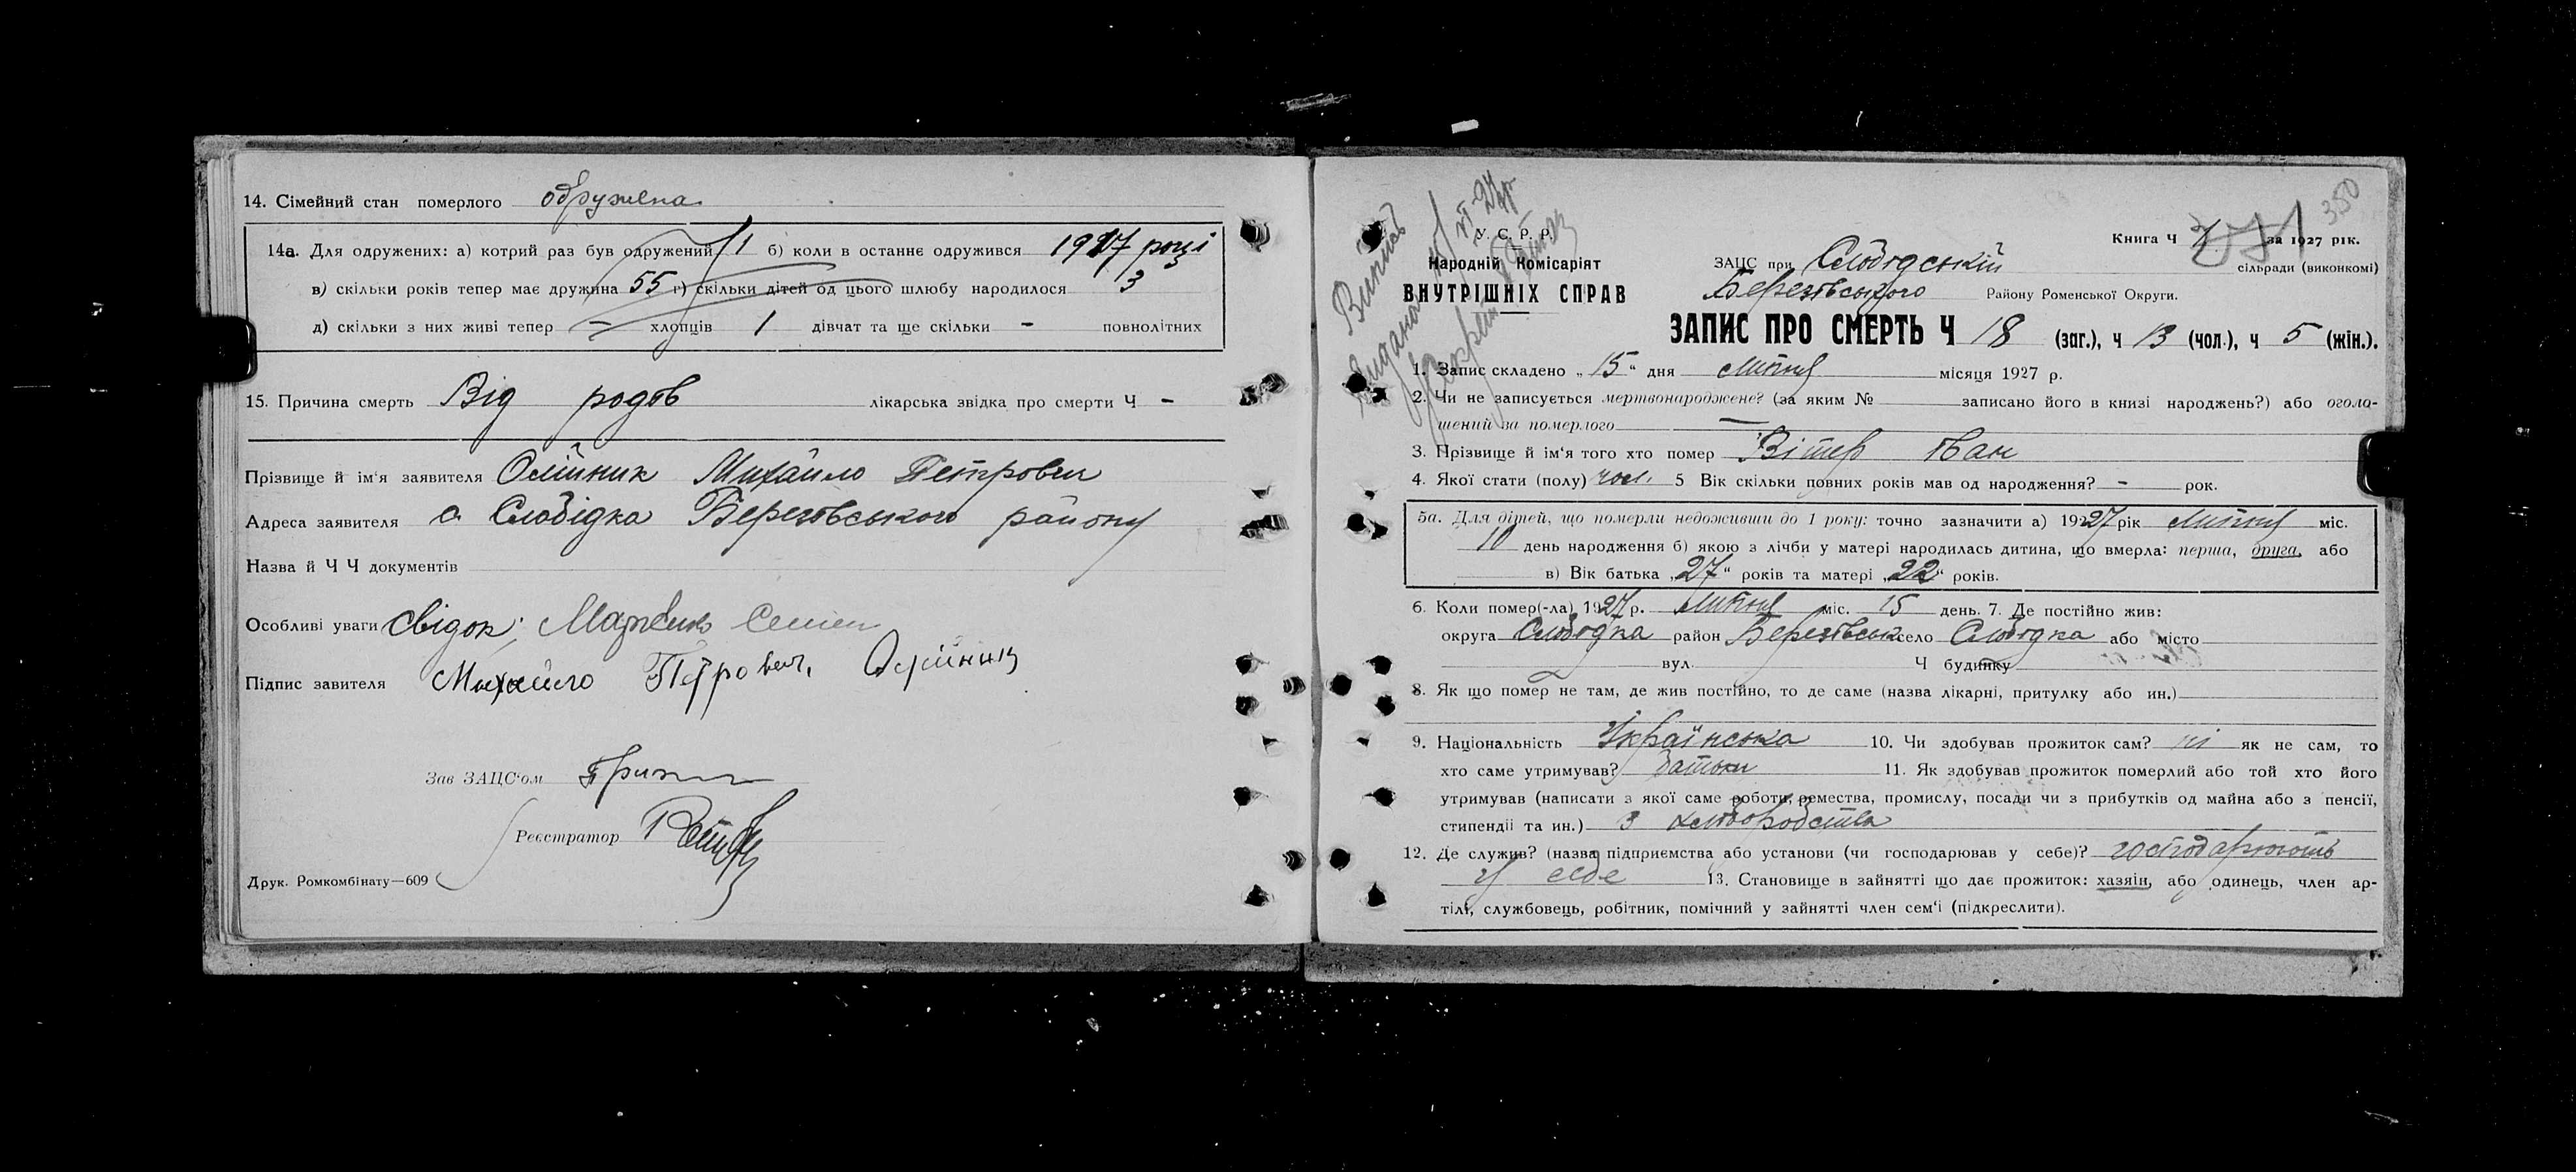 14. Сімейний стан померлого одружена
14а. Для одружених: а) котрий раз був одружений 1 б) коли в останнє одружився 1917 році
в) скільки років тепер має дружина 55 г) скільки дітей од цього шлюбу народилося 3
д) скільки з них живі тепер – хлопців 1 дівчат та ще скільки – повнолітних
15. Причина смерть Від родов лікарська звідка про смерти Ч –
Прізвище й ім'я заявителя Олійник Михайло Петрович
Адреса заявителя с Слобідка Березовського району
Назва й Ч Ч документів
Особливі уваги свідок: Марченко Семен
Підпис завителя Михайло Петрович Олійник
Зав ЗАЦС'ом
Реєстратор
Друк. Ромкомбінату—609
350
У. С. Р. Р.
Народній Комісаріят
ВНУТРІШНІХ СПРАВ
Книга Ч за 1927 рік.
ЗАЦС при Слобідській сільради (виконкомі)
Березівського Району Роменської Округи.
ЗАПИС ПРО СМЕРТЬ Ч 18 (заг.), ч 13 (чол.), ч 5 (жін.).
1. Запис складено „ 15 “ дня липня місяця 1927 р.
2. Чи не записується мертвонароджене? (за яким № записано його в книзі народжень?) або оголо-
шений за померлого —
3. Прізвище й ім'я того хто помер Вітер Іван
4. Якої стати (полу) чол. 5 Вік скільки повних років мав од народження? – рок.
5а. Для дітей, що померли недоживши до 1 року: точно зазначити а) 1927 рік липня міс.
10 день народження б) якою з лічби у матері народилась дитина, що вмерла: перша, друга, або
в) Вік батька „27“ років та матері „22“ років.
6. Коли помер(-ла) 1927 р. липня міс. 15 день. 7. Де постійно жив:
округа Слобідка район Березівськ село Слобідка або місто
вул. Ч будинку
8. Як що помер не там, де жив постійно, то де саме (назва лікарні, притулку або ин.)
9. Національність Українська 10. Чи здобував прожиток сам? ні як не сам, то
хто саме утримував? батьки 11. Як здобував прожиток померлий або той хто його
утримував (написати з якої саме роботи, ремества, промислу, посади чи з прибутків од майна або з пенсії,
стипендії та ин.) З хліборобства
12. Де служив? (назва підприємства або установи (чи господарював у себе)? господарюють
у себе 13. Становище в зайнятті що дає прожиток: хазяїн, або одинець, член ар-
тілі, службовець, робітник, помічний у зайнятті член сем'ї (підкреслити).